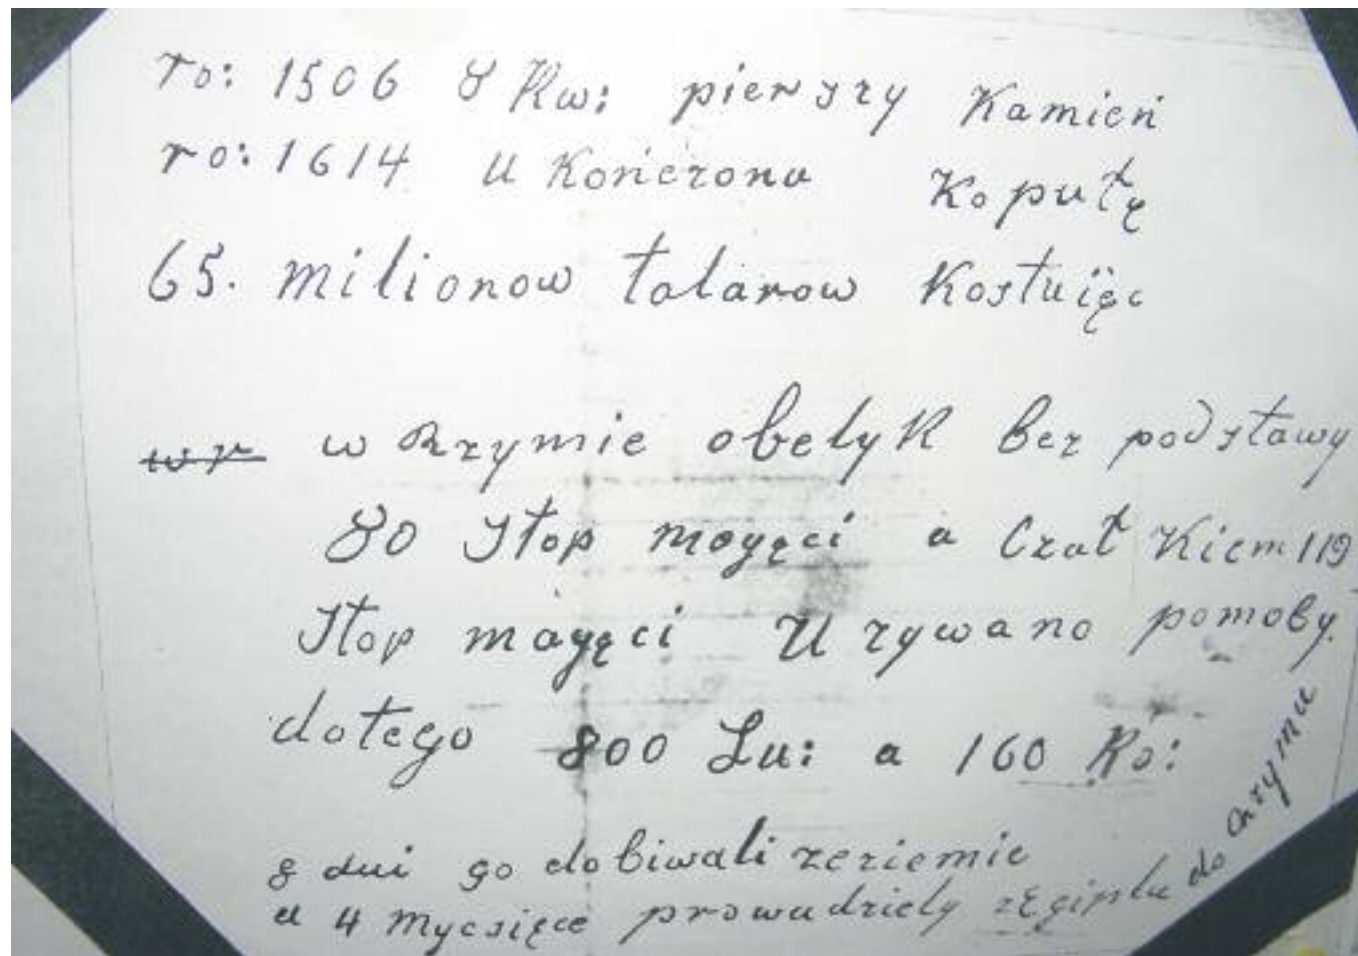 ro: 1506 8 Kw: pierszy Kamień
ro: 1614 U Kończona Kopułę
65. milionow talarow Kostuięc
w r w Rzymie obelyk bez podstawy
80 Stop mogęci a Czał Kiem 119
Stop mogęci Uzywano pomoby
dotego 800 Lu: a 160 Ko:
8 dni go dobiwali zeziemie
a 4 Mycsięce prowadziely zEgiptu do Rzymu